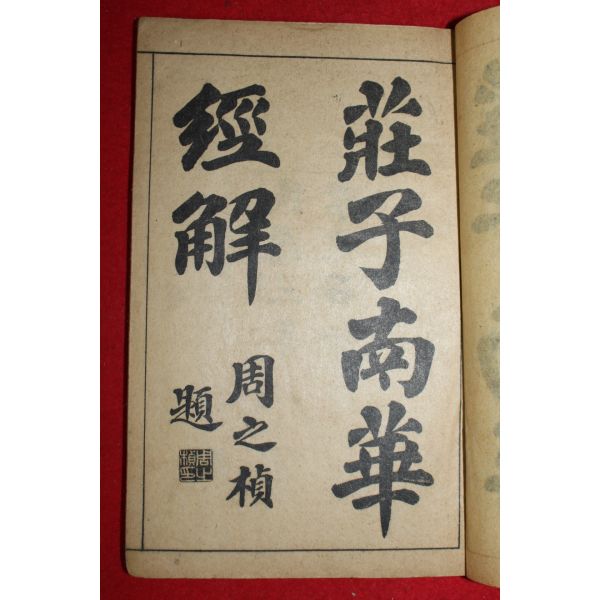 莊子南華
經解
周之楨
題
周之楨印